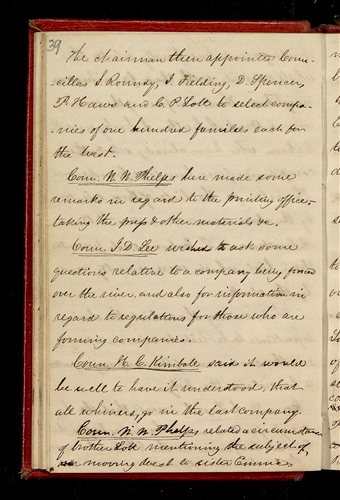 39
The chairman then appointed Coun-
-cillors S. Roundy, J. Fielding, D. Spencer,
P. Haws and C. P. Lott to select compa-
nies of one hundred families each for
the west.
Coun. W. W. Phelps here made some
remarks in regard to the printing office,
taking the press & other materials &c.
Coun. J. D. Lee wished to ask some
questions relative to a company being
over the river, and also for information in
regard to regulations for those who are
forming companies.
Coun. H. C. Kimball said it would
be well to have it understood, that
all whiners, go in the last company.
Coun. W. W. Phelps, related a circumstance
of brother Lott mentioning the subject of
moving west to sister Emma